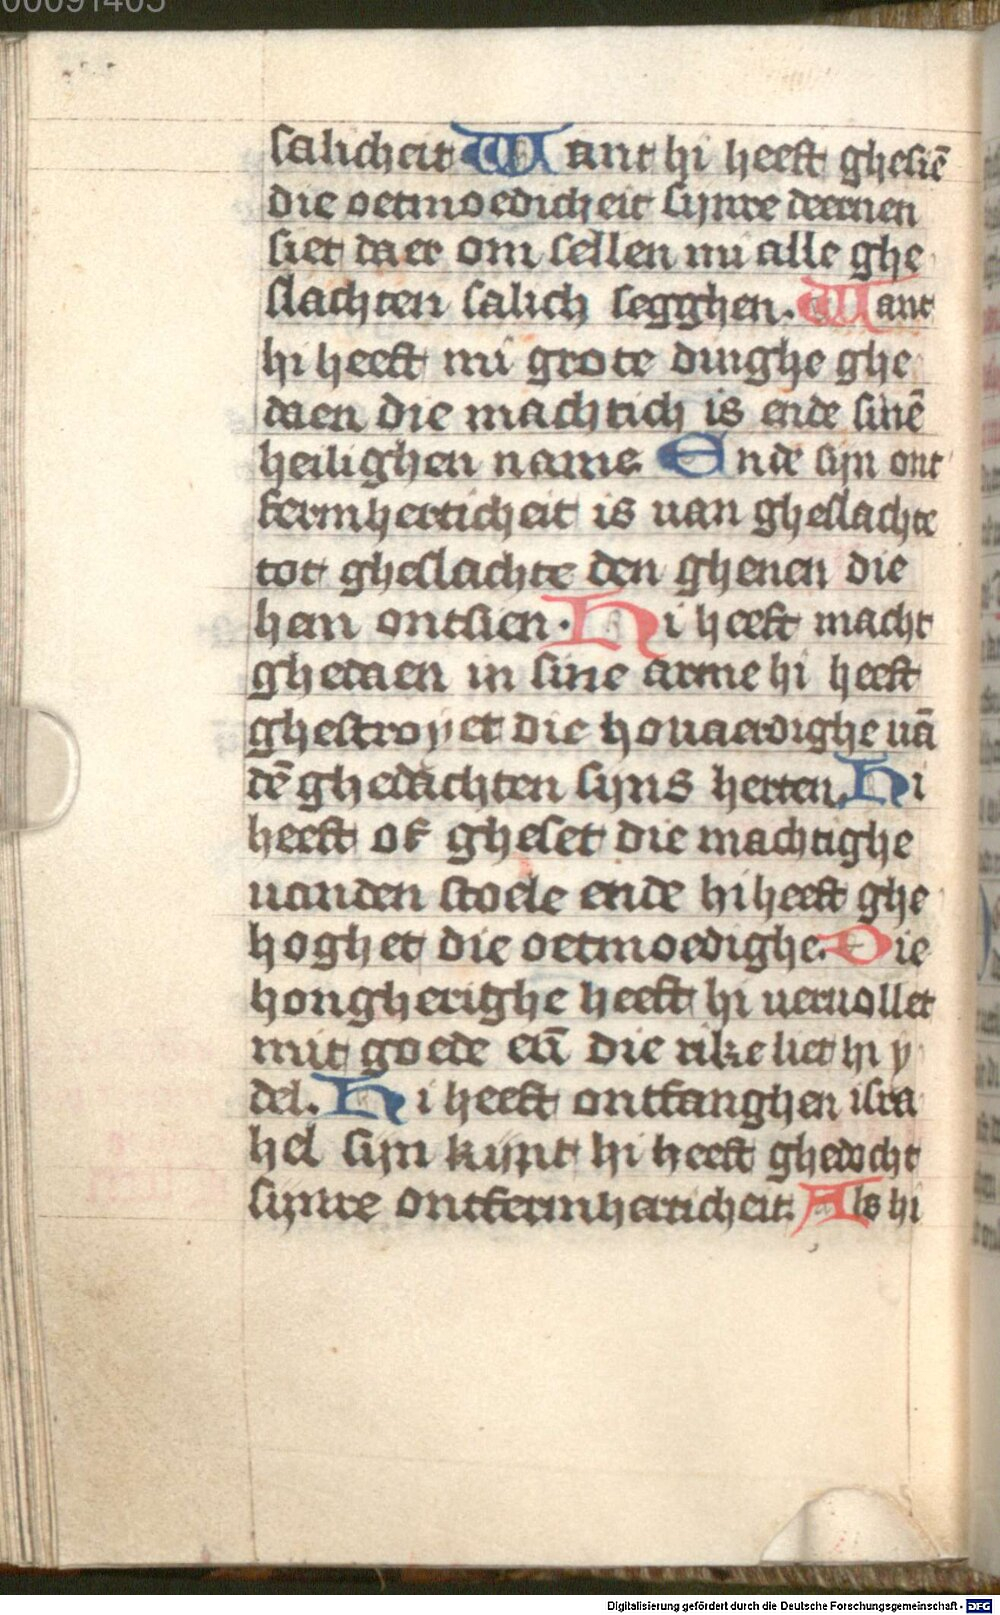 00091405
salicheit Want hi heeft ghesiē
die oetmoedicheit sijnre deernen
siet daer om sellen mi alle ghe
slachten salich segghen. Want
hi heeft mi grote dinghe ghe
daen die machtich is ende sinē
heilighen name. Ende sijn ont
fermherticheit is uan gheslachte
tot gheslachte den ghenen die
hem ontsien. Hi heeft macht
ghedaen in sine arme hi heeft
ghestroyet die houaerdighe uā
dē ghedachten sijns herten. Hi
heeft of gheset die machtighe
uanden stoele ende hi heeft ghe
hoghet die oetmoedighe. Die
hongherighe heeft hi veruollet
mit goede eñ die rike liet hi y
del. Hi heeft ontfanghen isra
hel sijn kijnt hi heeft ghedocht
sijnre ontfermherticheit. Als hi
Digitalisierung gefördert durch die Deutsche Forschungsgemeinschaft - DFG